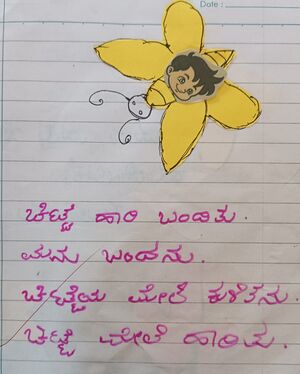 Date :
ಚಿಟ್ಟೆ ಹಾರಿ ಬಂದಿತು.
ಮನು ಬಂದನು.
ಚಿಟ್ಟೆಯ ಮೇಲೆ ಕುಳಿತನು.
ಚಿಟ್ಟೆ ಮೇಲೆ ಹಾರಿತು.